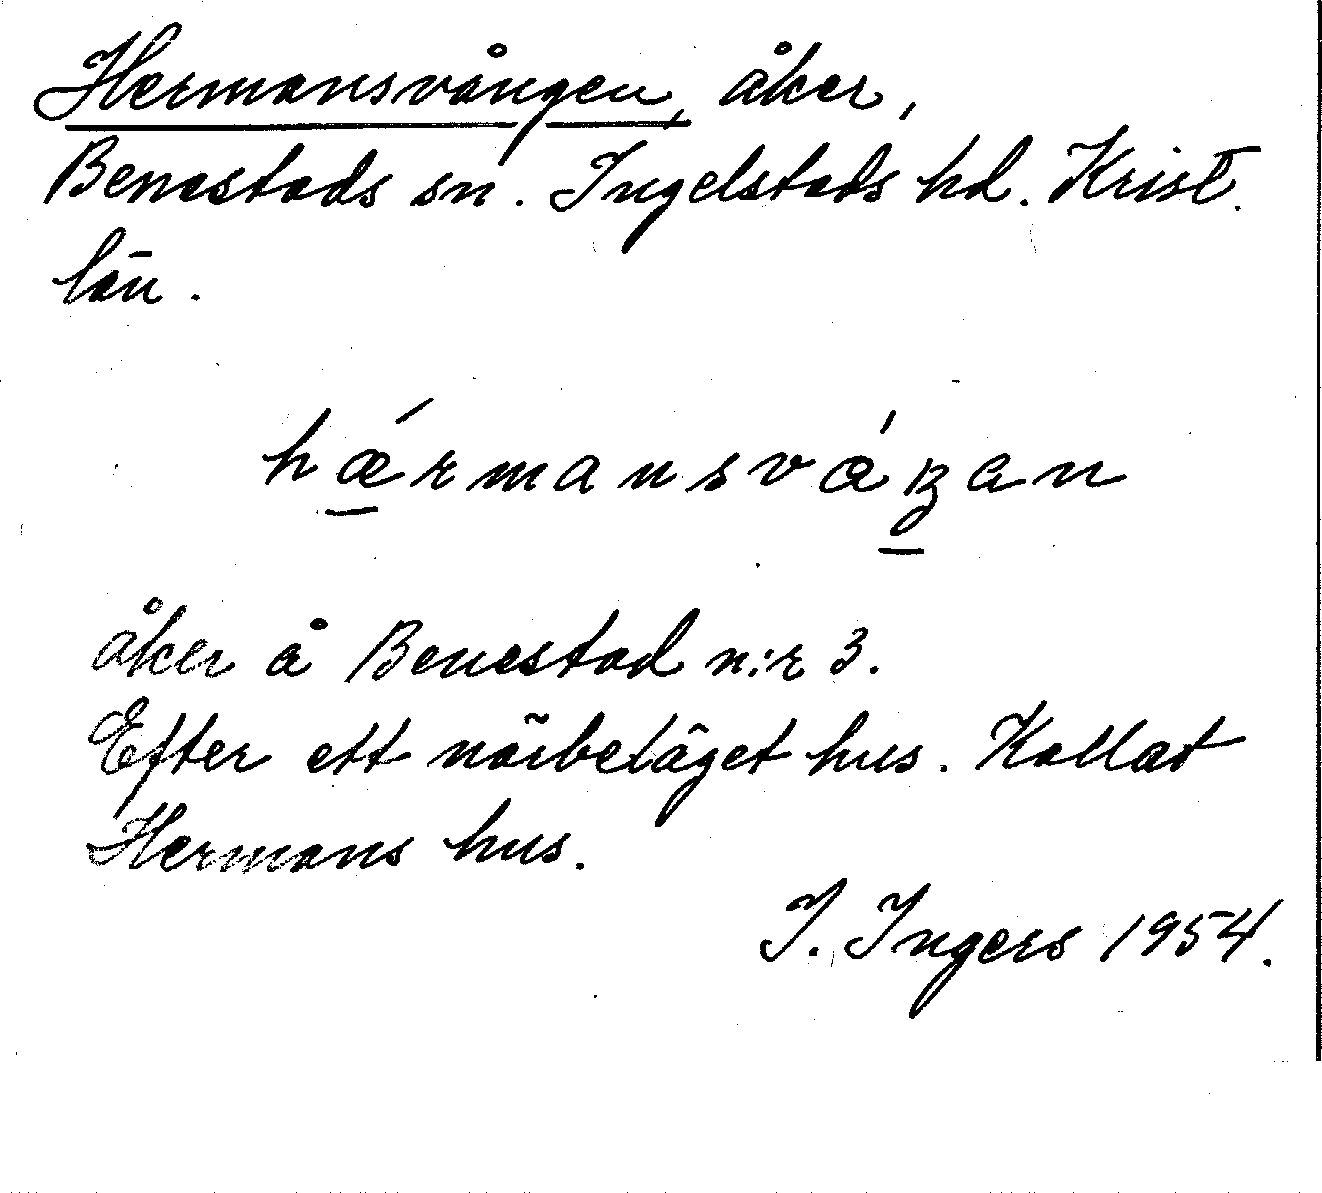 Hermansvången, åker,
Benestads sn. Ingelstads hd. Krist.
län.
hǽrmansvǿŋan
åker å Benestad n:r 3.
Efter ett närbeläget hus. Kallat
Hermans hus.
I. Ingers 1954.